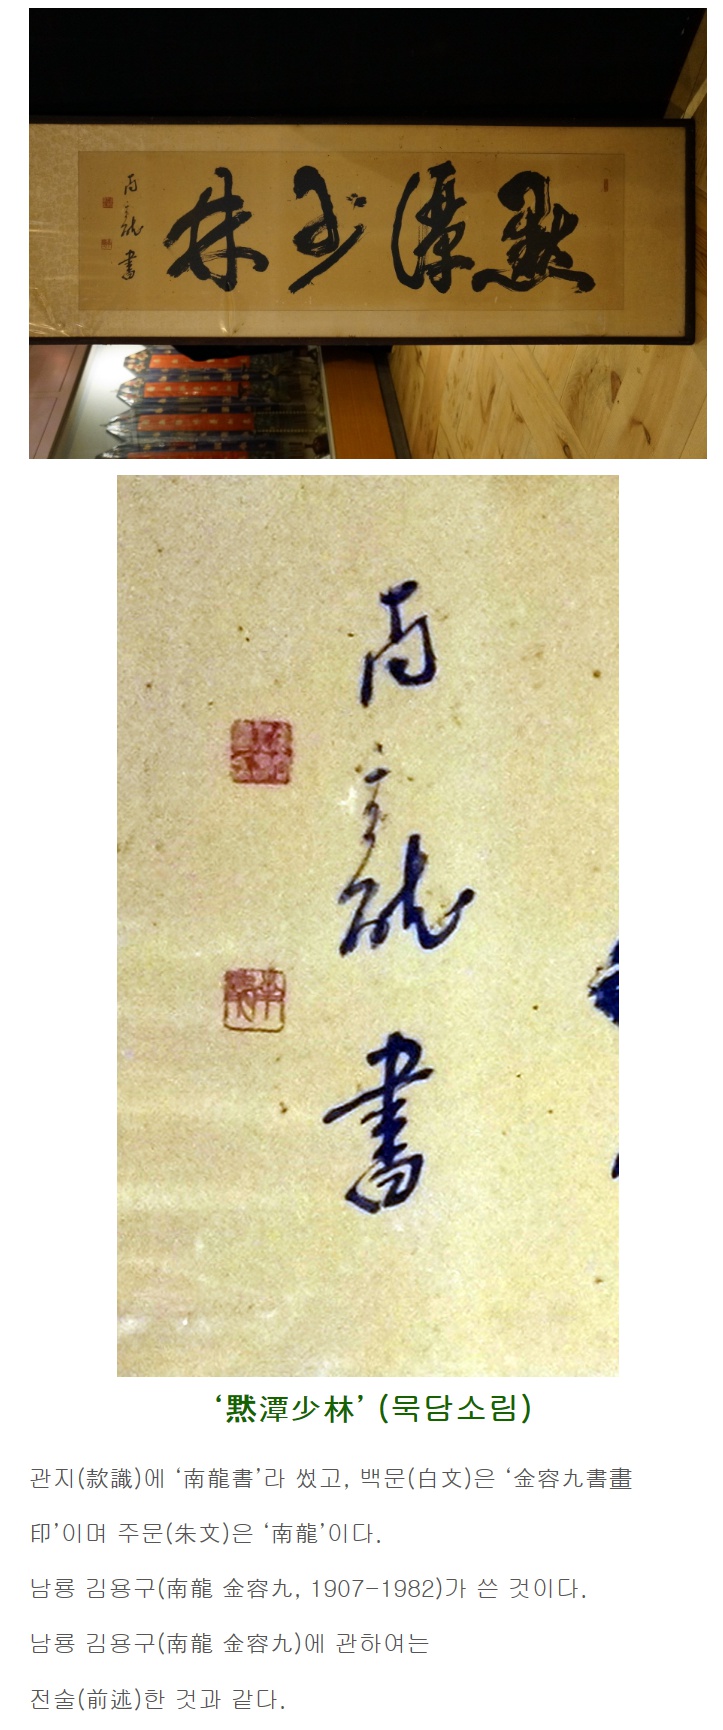 黙潭少林
南龍書
‘黙潭少林’ (묵담소림)
관지(款識)에 ‘南龍書’라 썼고, 백문(白文)은 ‘金容九書畫
印’이며 주문(朱文)은 ‘南龍’이다.
남룡 김용구(南龍 金容九, 1907-1982)가 쓴 것이다.
남룡 김용구(南龍 金容九)에 관하여는
전술(前述)한 것과 같다.